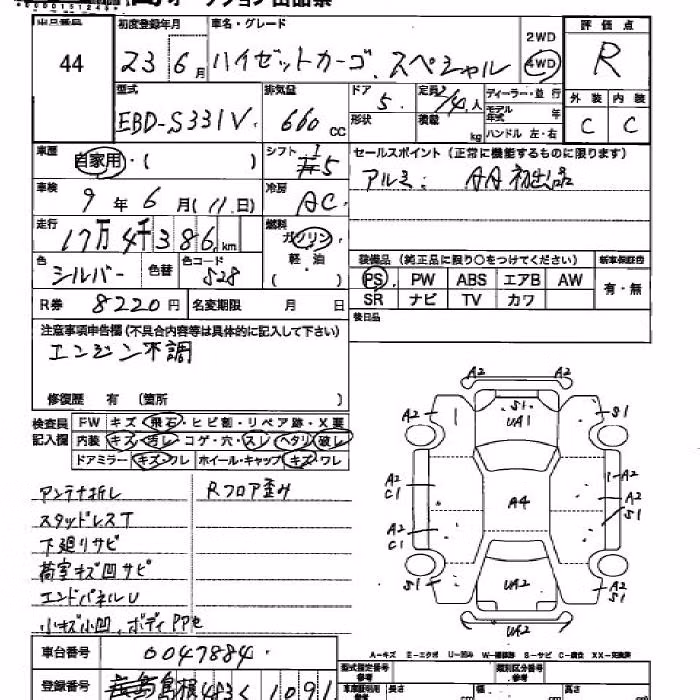 出品番号 44
初度登録年月 23 6月
車名・グレード ハイゼットカーゴ スペシャル
2WD
4WD
評価点 R
外装 内装
C C
型式 EBD-S331V
排気量 660 cc
ドア 5
形状
定員 2/4人
積載 kg
ディーラー・並行
モデル年式 年
ハンドル 左・右
車歴 自家用・( )
シフト
セールスポイント (正常に機能するものに限ります)
アルミ; AA初出品
車検 9年6月(11日)
冷房 AC
走行 17万4千386km
燃料 ガソリン
軽・油
( )
色 シルバー 色替
色コード S28
装備品 (純正品に限り○をつけてください)
新車保証書
PS PW ABS エアB AW
SR ナビ TV カワ
有・無
R券 8220円 名変期限 月 日
後日品
注意事項申告欄(不具合内容等は具体的に記入して下さい)
エンジン不調
修復歴 有 〔箇所 〕
検査員記入欄
FW キズ・飛石・ヒビ割・リペア跡・X要
内装 キズ・汚レ・コゲ・穴・スレ・ヘタリ・破レ
ドアミラー キズ・ワレ ホイール・キャップ キズ・ワレ
アンテナ折レ Rフロア歪み
スタッドレスT
下廻りサビ
荷室キズ凹サビ
エンドパネルU
小キズ小凹、ボディPP他
A2
A2 1 S1 UA1 S1
A2 C1 A4 1 A2
A2 S1
A2 C1
S1 UA2 A2 S1
UA2
A-キズ E-エクボ U-凹み W-補修跡 S-サビ C-腐食 XX-交換済
車台番号 0047884
型式指定番号
類別区分番号
登録番号 島根 483く 1091
長さ cm 幅 cm 高さ